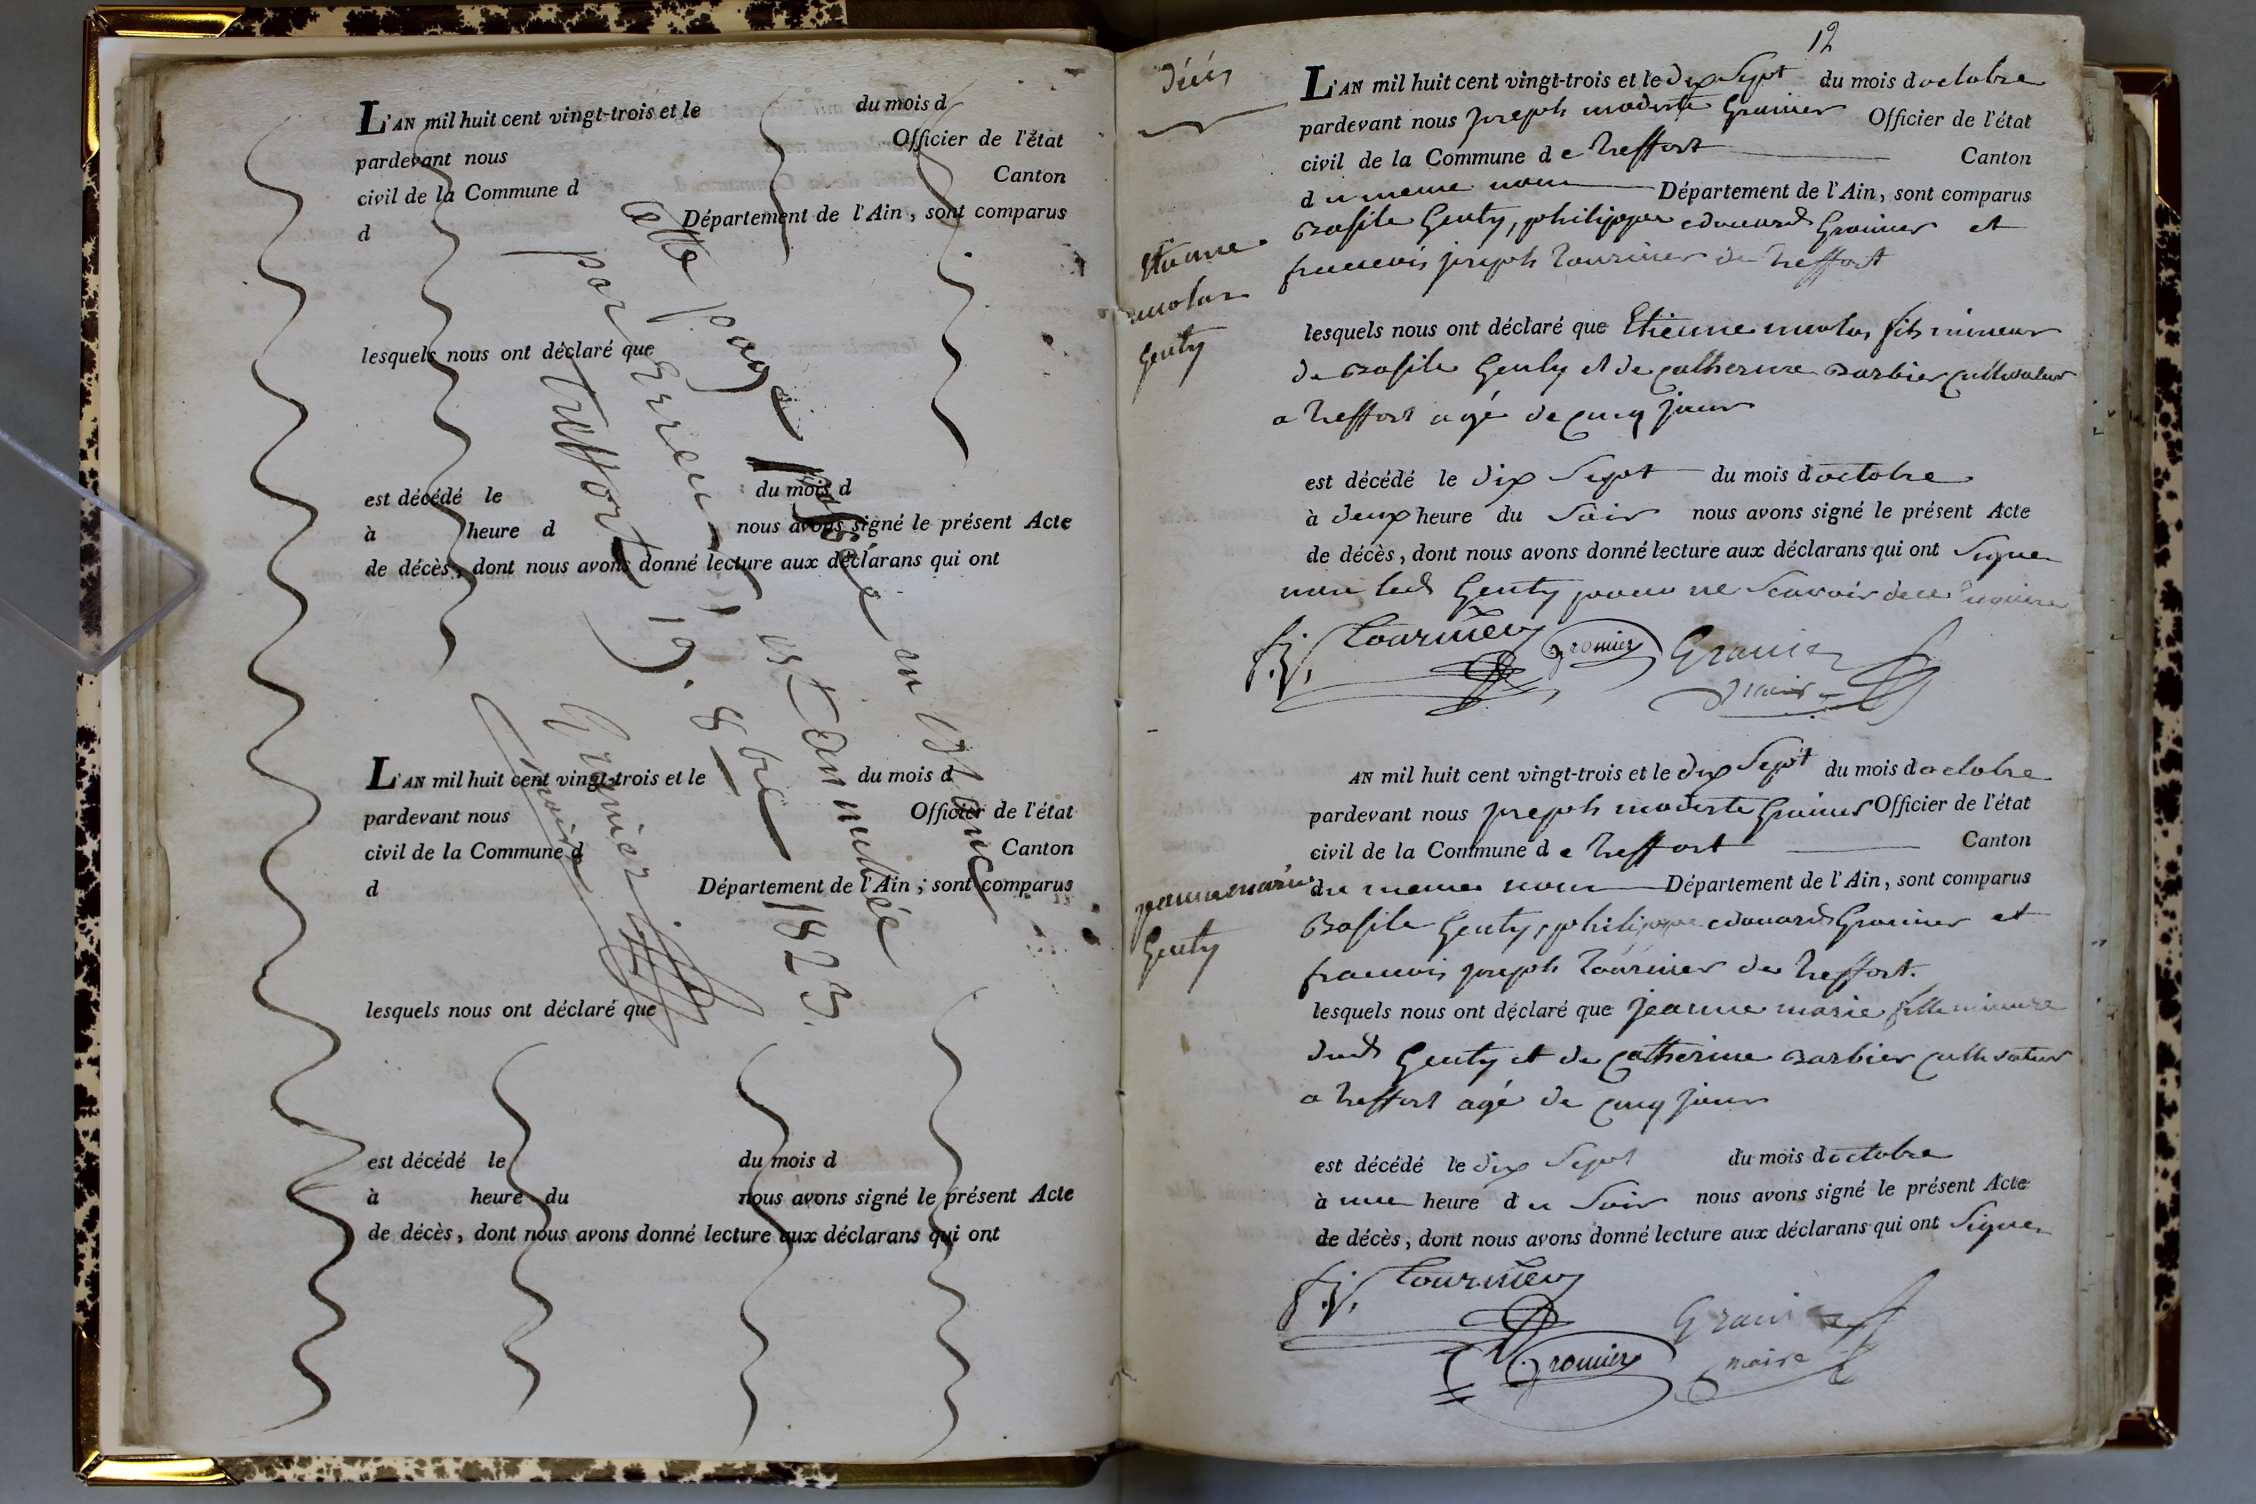 L'AN mil huit cent vingt-trois et le du mois d
pardevant nous Officier de l'état
civil de la Commune d Canton
d Département de l'Ain, sont comparus
lesquels nous ont déclaré que
est décédé le du mois d
à heure d nous avons signé le présent Acte
de décès, dont nous avons donné lecture aux déclarans qui ont
cette page laissée en blanc
par erreur est annulée
treffort 19. 8bre 1823.
Gromier
maire
L'AN mil huit cent vingt-trois et le du mois d
pardevant nous Officier de l'état
civil de la Commune d Canton
d Département de l'Ain ; sont comparus
lesquels nous ont déclaré que
est décédé le du mois d
à heure du nous avons signé le présent Acte
de décès, dont nous avons donné lecture aux déclarans qui ont
12
décés
L'AN mil huit cent vingt-trois et le dix Sept du mois doctobre
pardevant nous joseph modeste Gromier Officier de l'état
civil de la Commune de treffort Canton
du meme nom Département de l'Ain, sont comparus
Basile Genty, philippe edouard Gromier et
francois joseph Tournier de treffort
Etienne
nicolas
Genty
lesquels nous ont déclaré que Etienne nicolas fils mineur
de Basile Genty et de catherine Barbier cultivateur
a treffort agé de cinq jour
est décédé le dix Sept du mois doctobre
à deux heure du Soir nous avons signé le présent Acte
de décès, dont nous avons donné lecture aux déclarans qui ont Signe
non led Genty pour ne Scavoir de ce enquis
f. j. Tournier Gromier Gromier
maire
AN mil huit cent vingt-trois et le dix Sept du mois doctobre
pardevant nous joseph modeste Gromier Officier de l'état
civil de la Commune de treffort Canton
du meme nom Département de l'Ain, sont comparus
jeanne marie
Genty
Basile Genty, philippe edouard Gromier et
francois joseph Tournier de treffort.
lesquels nous ont déclaré que jeanne marie fille mineure
dud Genty et de Catherine Barbier cultivateur
a treffort agé de cinq jour
est décédé le dix Sept du mois doctobre
à une heure du Soir nous avons signé le présent Acte
de décès, dont nous avons donné lecture aux déclarans qui ont Signe
f. j. Tournier
Gromier Gromier
maire